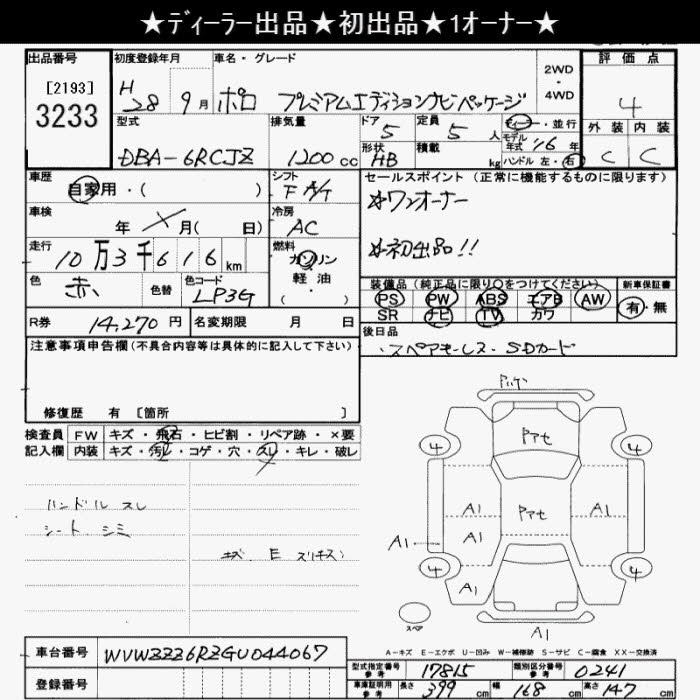 ★ディーラー出品★初出品★1オーナー★
出品番号 初度登録年月 車名・グレード 2WD・4WD 評価点
[2193]
3233
H28 9月 ポロ プレミアムエディションナビパッケージ 4
型式 排気量 ドア 5 定員 5人 ディーラー・並行 外装 内装
モデル年式 16年
DBA-6RCJZ 1200cc 形状 HB 積載 kg ハンドル 左・右 C C
車歴 シフト セールスポイント(正常に機能するものに限ります)
自家用・( ) F A/T
☆ワンオーナー
車検 年 月( 日) 冷房 AC
☆初出品!!
走行 10万3千616km 燃料 ガソリン・軽油・( )
色 赤 色替 色コード LP3G
装備品(純正品に限り○をつけてください) 新車保証書
PS PW ABS エアB AW 有・無
SR ナビ TV カワ
R券 14,270円 名変期限 月 日
後日品
・スペアキーレス・SDカード
注意事項申告欄(不具合内容等は具体的に記入して下さい)
修復歴 有 [箇所 ]
検査員 FW キズ・飛石・ヒビ割・リペア跡・×要
記入欄 内装 キズ・汚レ・コゲ・穴・スレ・キレ・破レ
ハンドル スレ
シート シミ
4 4
A1 A1
A1 A1
4 4
A1
スペア
A1
A-キズ E-エクボ U-凹み W-補修跡 S-サビ C-腐食 XX-交換済
車台番号 WVWZZZ6RZGU044067
型式指定番号参考 17815 類別区分番号参考 0241
登録番号
車庫証明用参考 長さ 399cm 幅 168cm 高さ 147cm